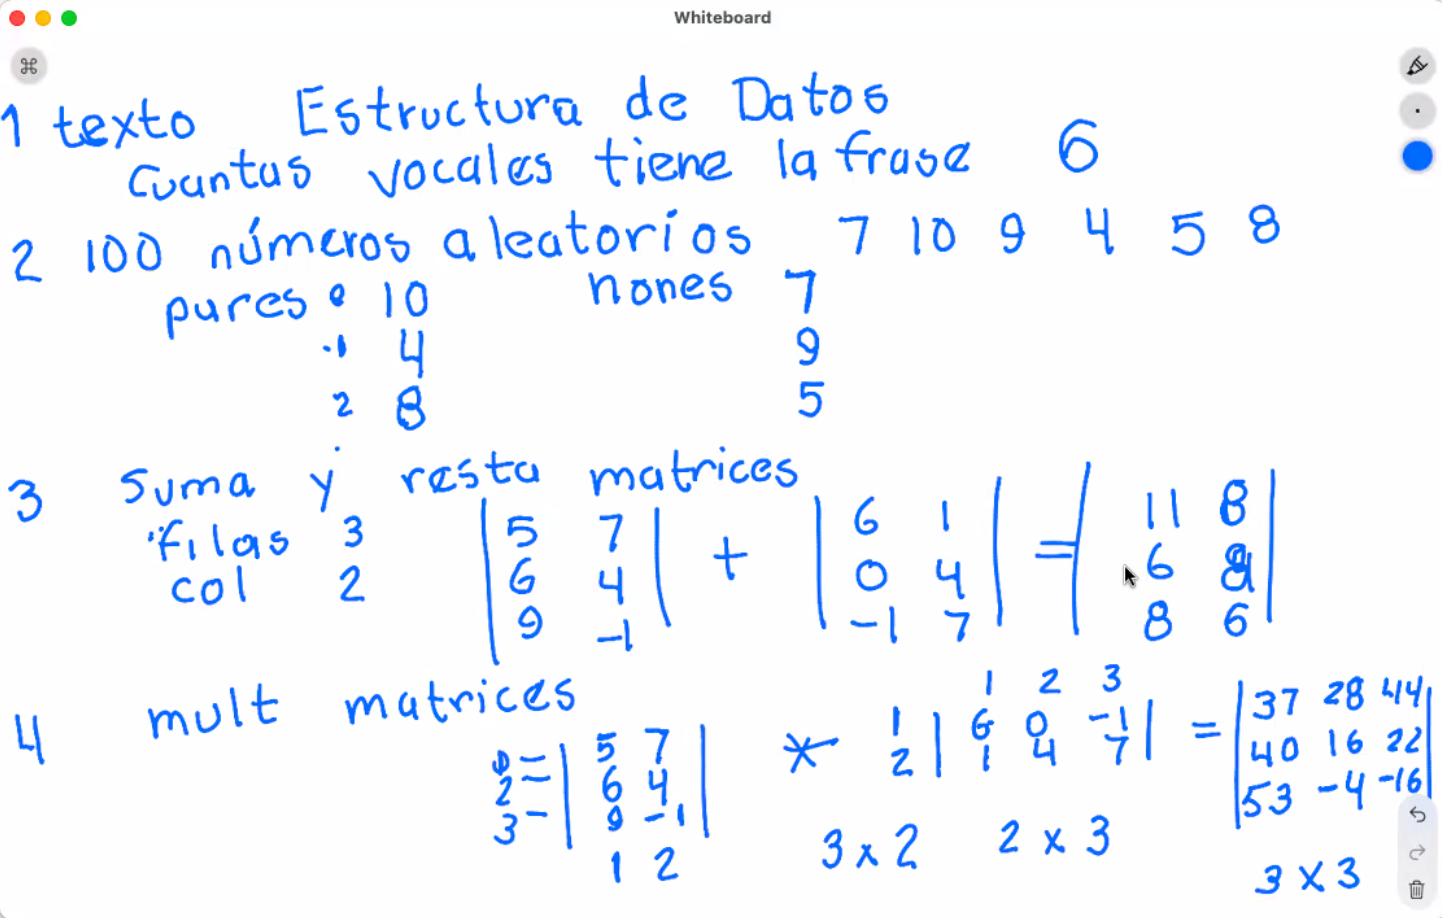 Whiteboard
1 texto Estructura de Datos
Cuantas vocales tiene la frase 6
2 100 números aleatorios 7 10 9 4 5 8
pares 0 10 nones 7
1 4 9
2 8 5
3 Suma y resta matrices
filas 3 | 5 7 | + | 6 1 | = | 11 8 |
col 2 | 6 4 | | 0 4 | | 6 |
| 9 -1 | | -1 7 | | 8 6 |
4 mult matrices
1 2 3
| 5 7 | * 1 | 6 0 -1 | = | 37 28 44 |
2 | 6 4 | 2 | 1 4 7 | | 40 16 22 |
3 | 9 -1 | | 53 -4 -16 |
1 2 3 x 2 2 x 3 3 x 3